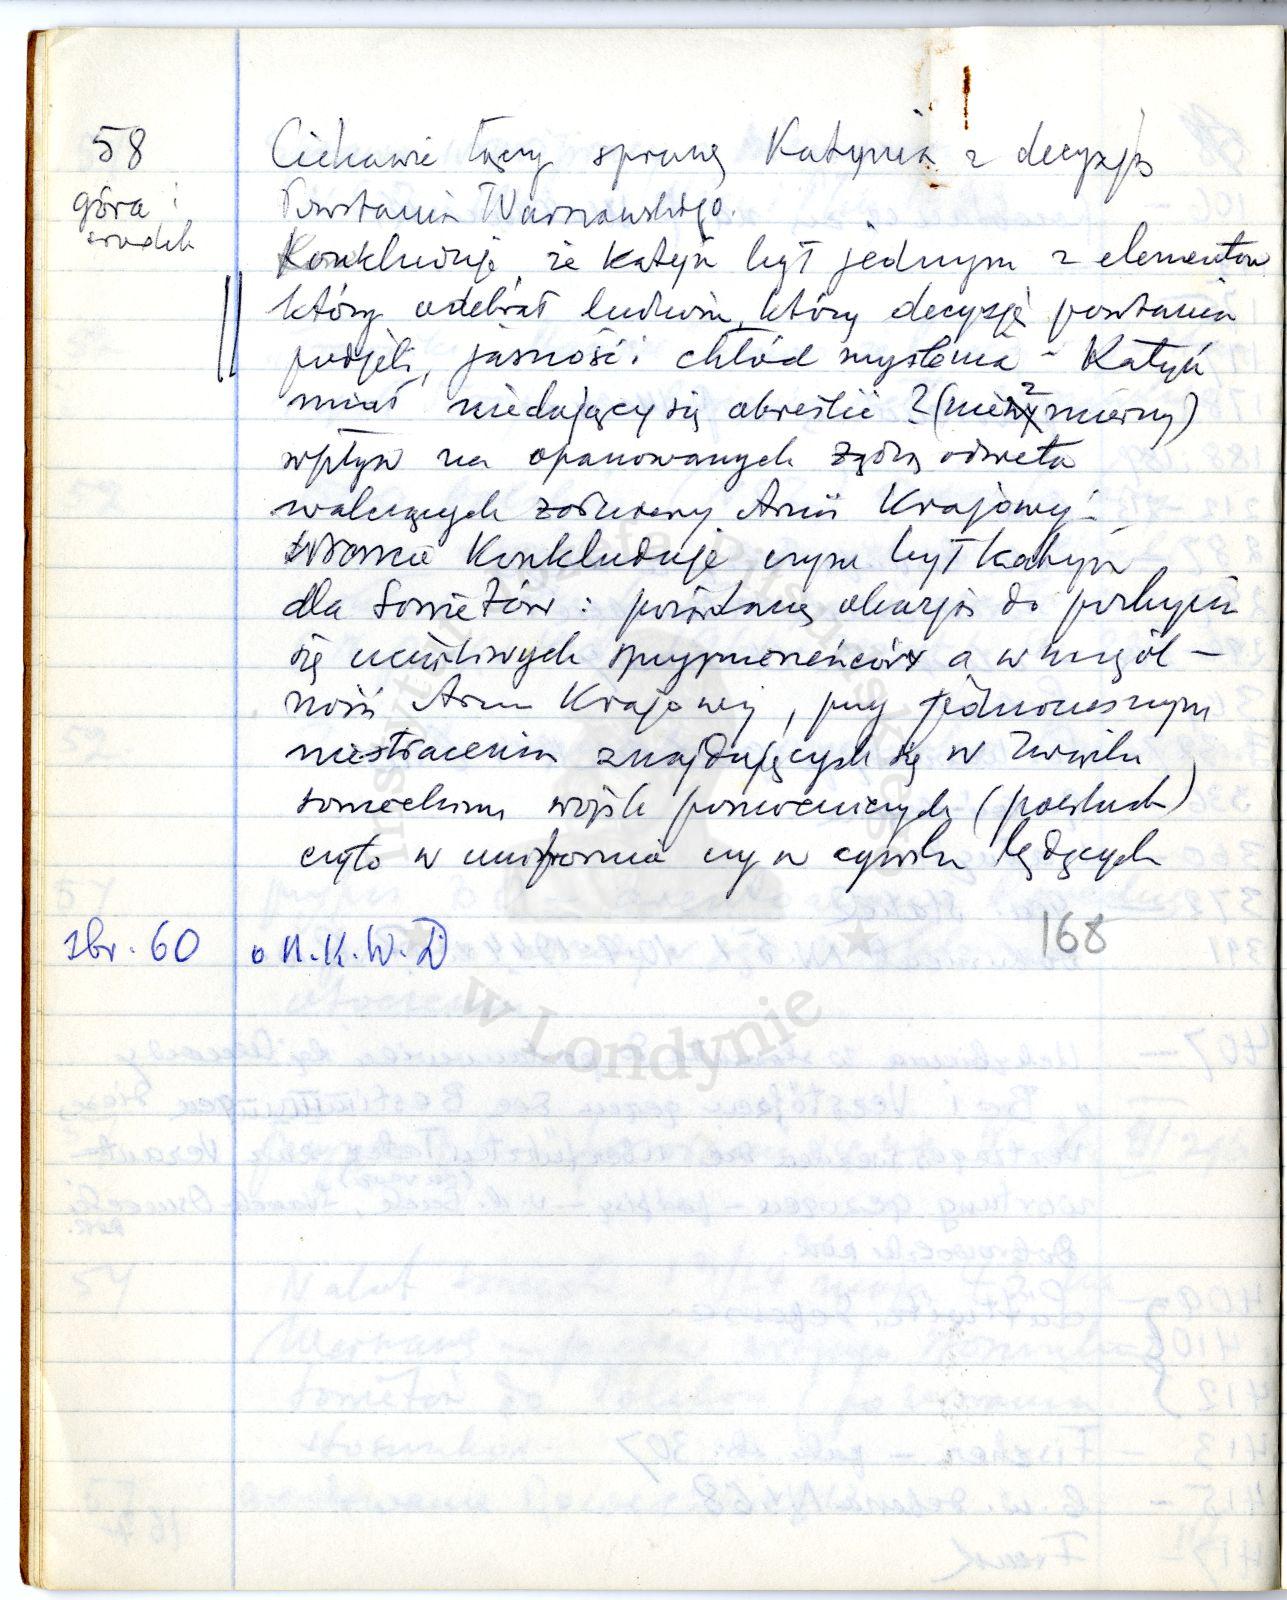 58
góra i
środek
Ciekawie łączy sprawę Katynia z decyzją
Powstania Warszawskiego.
Konkluduje, że Katyń był jednym z elementów
który odebrał ludziom, którzy decyzję powstania
podjęli, jasność i chłód myślenia - Katyń
miał niedający się określić ? (niezmierny)
wpływ na opanowanych żądzą odwetu
walczących żołnierzy Armii Krajowej.
Konkluduje czym był Katyń
dla Sowietów : pożądaną okazją do pozbycia
się uciążliwych sprzymierzeńców a w szczegól-
ności Armii Krajowej, przy jednoczesnym
niestraceniu znajdujących się w Związku
sowieckim wojsk pomocniczych (polskich)
czy to w uniformie czy w cywilu będących
str. 60
o N.K.W.D
168
w Londynie